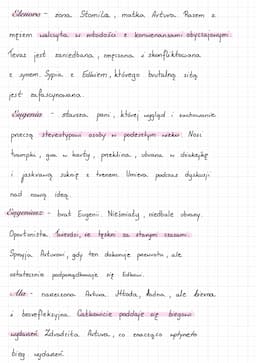 Eleonora - żona Stomila, matka Artura. Razem z
mężem walczyła w młodości z konwenansami obyczajowymi.
Teraz jest zaniedbana, zmęszona i skonfliktowana
z synem. Sypia z Edkiem, którego brutalną siłą
jest zafascynowana.
Eugenia - starsza pani, której wygląd i zachowanie
przeczą stereotypowi osoby w podeszłym wieku. Nosi
trampki, gra w karty, przeklina, ubrana w dżokejkę
i jaskrawą suknię z trenem. Umiera podczas dyskusji
nad nową ideą.
Eugeniusz - brat Eugenii. Nieśmiały, niedbale ubrany.
Oportunista. Twierdzi, że tęskni za starymi czasami.
Sprzyja Arturowi, gdy ten dokonuje przewrotu, ale
ostatecznie podporządkowuje się Edkowi.
Ala - narzeczona Artura. Młoda, ładna, ale bierna
i bezrefleksyjna. Całkowicie poddaje się biegowi
wydarzeń. Zdradziła Artura, co znacząco wpłynęło
bieg wydarzeń.